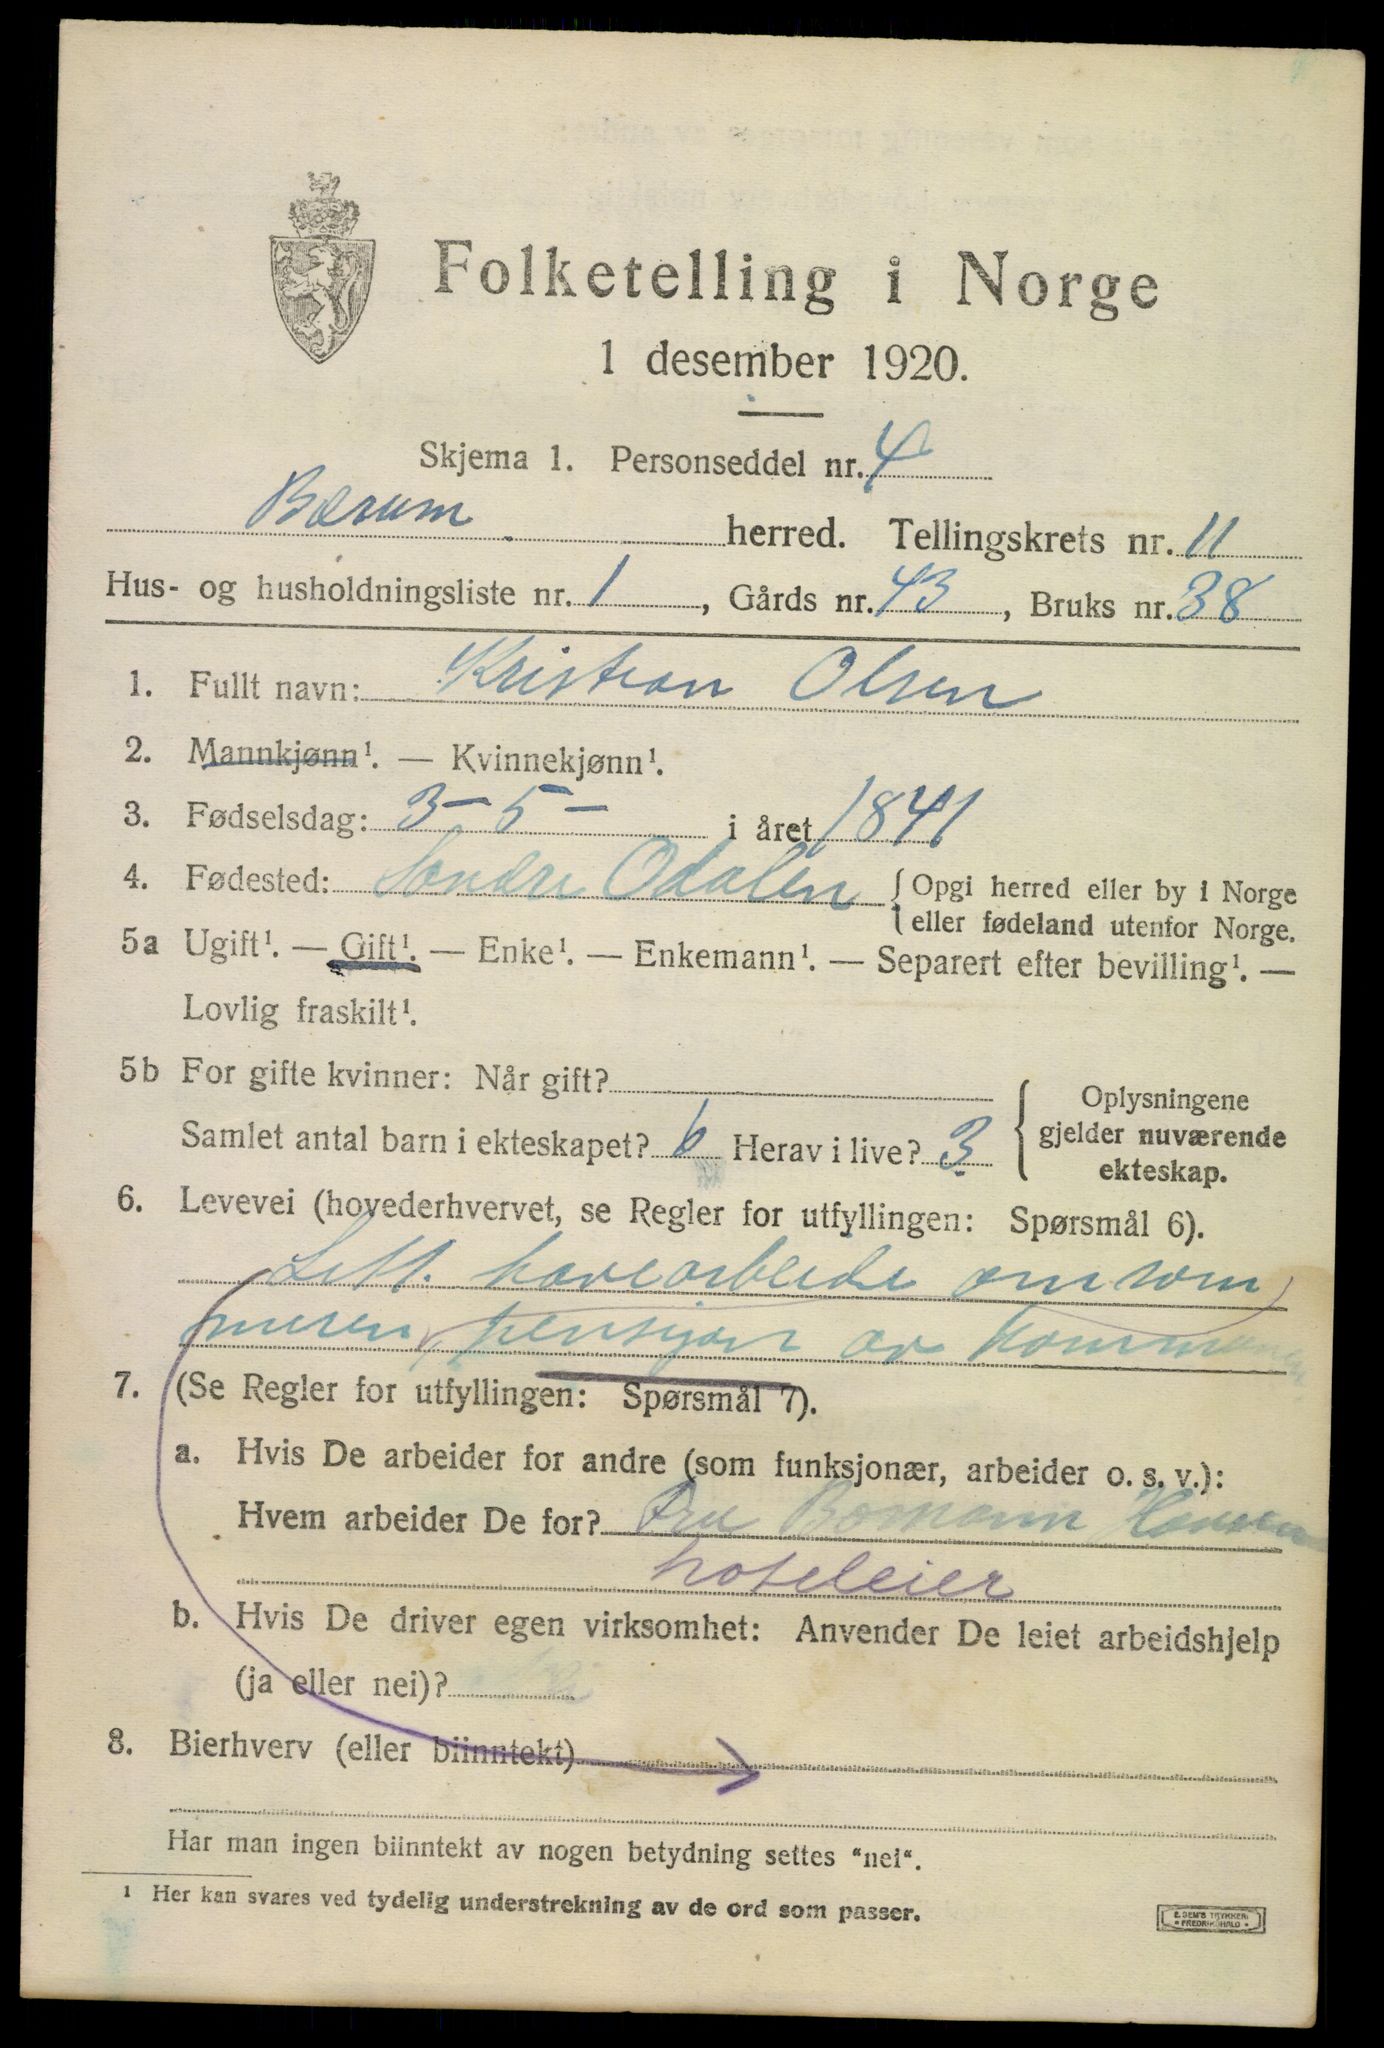 Folketelling i Norge
1 desember 1920.
Skjema 1. Personseddel nr. 4
Bærum herred. Tellingskrets nr. 11
Hus- og husholdningsliste nr. 1, Gårds nr. 43, Bruks nr. 38
1. Fullt navn: Kristian Olsen
2. Mannkjønn¹. — Kvinnekjønn¹.
3. Fødselsdag: 3 - 5 - i året 1841
4. Fødested: Søndre Odalen { Opgi herred eller by i Norge
eller fødeland utenfor Norge.
5a Ugift¹. — Gift¹. — Enke¹. — Enkemann¹. — Separert efter bevilling¹. —
Lovlig fraskilt¹.
5b For gifte kvinner: Når gift?
Samlet antal barn i ekteskapet? 6 Herav i live? 3
{ Oplysningene
gjelder nuværende
ekteskap.
6. Levevei (hovederhvervet, se Regler for utfyllingen: Spørsmål 6).
Litt havearbeide om som
meren, pensjon av
7. (Se Regler for utfyllingen: Spørsmål 7).
a. Hvis De arbeider for andre (som funksjonær, arbeider o. s. v.):
Hvem arbeider De for? Fru Bomann Hansen
hoteleier
b. Hvis De driver egen virksomhet: Anvender De leiet arbeidshjelp
(ja eller nei)?
8. Bierhverv (eller biinntekt)
Har man ingen biinntekt av nogen betydning settes "nei".
¹ Her kan svares ved tydelig understrekning av de ord som passer.
E. SEM'S TRYKKERI
• FREDRIKSHALD •